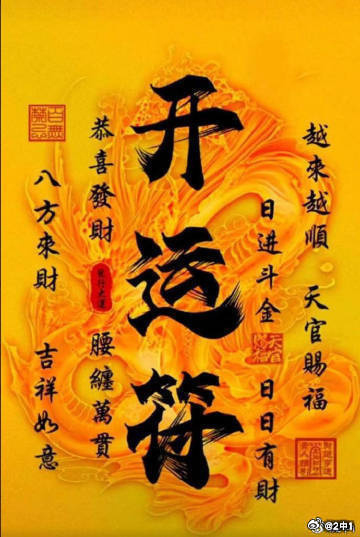 开运符
越來越順 天官賜福
日进斗金 日日有財
恭喜發財 腰纏萬貫
八方來財 吉祥如意
百無禁忌
天官賜福
@2中1